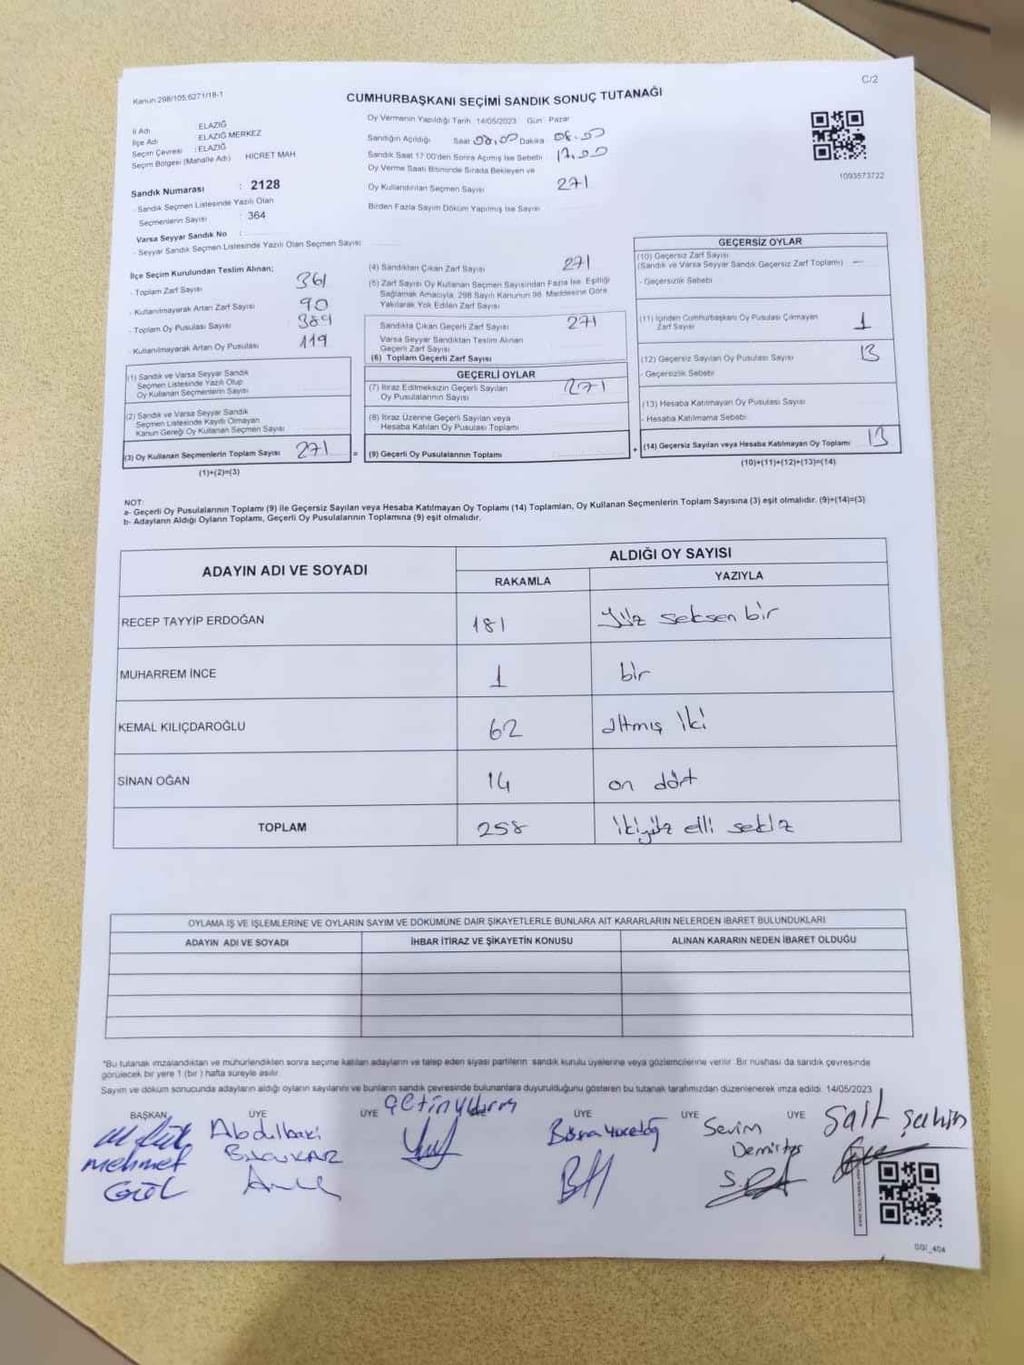 C/2
Kanun:298/105;6271/18-1
CUMHURBAŞKANI SEÇİMİ SANDIK SONUÇ TUTANAĞI
İl Adı : ELAZIĞ
İlçe Adı : ELAZIĞ MERKEZ
Seçim Çevresi : ELAZIĞ
Seçim Bölgesi (Mahalle Adı) HİCRET MAH
Sandık Numarası : 2128
- Sandık Seçmen Listesinde Yazılı Olan
Seçmenlerin Sayısı : 364
Varsa Seyyar Sandık No :
- Seyyar Sandık Seçmen Listesinde Yazılı Olan Seçmen Sayısı
Oy Vermenin Yapıldığı Tarih 14/05/2023 Gün : Pazar
Sandığın Açıldığı Saat 08.00 Dakika 08.00
Sandık Saat 17:00'den Sonra Açılmış İse Sebebi 17.00
Oy Verme Saati Bitiminde Sırada Bekleyen ve
Oy Kullandırılan Seçmen Sayısı 271
Birden Fazla Sayım Döküm Yapılmış İse Sayısı
1093573722
İlçe Seçim Kurulundan Teslim Alınan;
- Toplam Zarf Sayısı 361
- Kullanılmayarak Artan Zarf Sayısı 90
- Toplam Oy Pusulası Sayısı 389
- Kullanılmayarak Artan Oy Pusulası 119
(1) Sandık ve Varsa Seyyar Sandık
Seçmen Listesinde Yazılı Olup
Oy Kullanan Seçmenlerin Sayısı
(2) Sandık ve Varsa Seyyar Sandık
Seçmen Listesinde Kayıtlı Olmayan
Kanun Gereği Oy Kullanan Seçmen Sayısı
(3) Oy Kullanan Seçmenlerin Toplam Sayısı 271 =
(1)+(2)=(3)
(4) Sandıktan Çıkan Zarf Sayısı 271
(5) Zarf Sayısı Oy Kullanan Seçmen Sayısından Fazla İse, Eşitliği
Sağlamak Amacıyla, 298 Sayılı Kanunun 98. Maddesine Göre
Yakılarak Yok Edilen Zarf Sayısı
Sandıkta Çıkan Geçerli Zarf Sayısı 271
Varsa Seyyar Sandıktan Teslim Alınan
Geçerli Zarf Sayısı
(6) Toplam Geçerli Zarf Sayısı
GEÇERLİ OYLAR
(7) İtiraz Edilmeksizin Geçerli Sayılan
Oy Pusulalarının Sayısı 271
(8) İtiraz Üzerine Geçerli Sayılan veya
Hesaba Katılan Oy Pusulası Toplamı
(9) Geçerli Oy Pusulalarının Toplamı +
GEÇERSİZ OYLAR
(10) Geçersiz Zarf Sayısı
(Sandık ve Varsa Seyyar Sandık Geçersiz Zarf Toplamı) –
- Geçersizlik Sebebi
(11) İçinden Cumhurbaşkanı Oy Pusulası Çıkmayan
Zarf Sayısı 1
(12) Geçersiz Sayılan Oy Pusulası Sayısı 13
- Geçersizlik Sebebi
(13) Hesaba Katılmayan Oy Pusulası Sayısı
- Hesaba Katılmama Sebebi
(14) Geçersiz Sayılan veya Hesaba Katılmayan Oy Toplamı 13
(10)+(11)+(12)+(13)=(14)
NOT:
a- Geçerli Oy Pusulalarının Toplamı (9) ile Geçersiz Sayılan veya Hesaba Katılmayan Oy Toplamı (14) Toplamları, Oy Kullanan Seçmenlerin Toplam Sayısına (3) eşit olmalıdır. (9)+(14)=(3)
b- Adayların Aldığı Oyların Toplamı, Geçerli Oy Pusulalarının Toplamına (9) eşit olmalıdır.
ADAYIN ADI VE SOYADI
ALDIĞI OY SAYISI
RAKAMLA YAZIYLA
RECEP TAYYİP ERDOĞAN 181 Yüz seksen bir
MUHARREM İNCE 1 bir
KEMAL KILIÇDAROĞLU 62 altmış iki
SİNAN OĞAN 14 on dört
TOPLAM 258 ikiyüz elli sekiz
OYLAMA İŞ VE İŞLEMLERİNE VE OYLARIN SAYIM VE DÖKÜMÜNE DAİR ŞİKAYETLERLE BUNLARA AİT KARARLARIN NELERDEN İBARET BULUNDUKLARI
ADAYIN ADI VE SOYADI İHBAR İTİRAZ VE ŞİKAYETİN KONUSU ALINAN KARARIN NEDEN İBARET OLDUĞU
*Bu tutanak imzalandıktan ve mühürlendikten sonra seçime katılan adayların ve talep eden siyasi partilerin sandık kurulu üyelerine veya gözlemcilerine verilir. Bir nüshası da sandık çevresinde
görülecek bir yere 1 (bir) hafta süreyle asılır.
Sayım ve döküm sonucunda adayların aldığı oyların sayılarını ve bunların sandık çevresinde bulunanlara duyurulduğunu gösteren bu tutanak tarafımızdan düzenlenerek imza edildi. 14/05/2023
BAŞKAN ÜYE ÜYE ÜYE ÜYE ÜYE
Mehmet
GÜL
Abdulbaki
Çetin Yıldırım
Büşra Yüceldağ
Sevim
Demirtaş
Sait Şahin